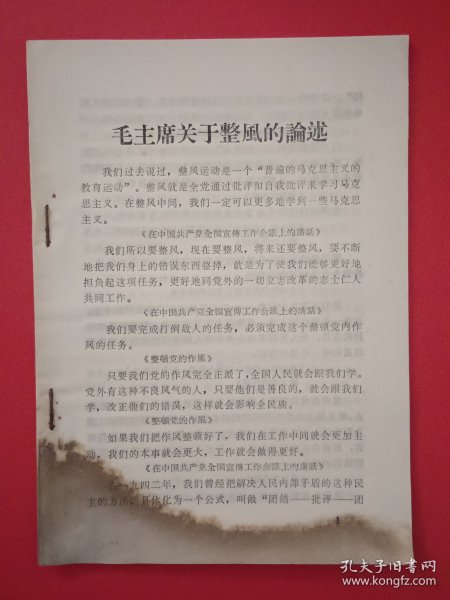 毛主席关于整風的論述
我们过去说过，整风运动是一个“普遍的马克思主义的
教育运动”。整风就是全党通过批评和自我批评来学习马克
思主义。在整风中间，我们一定可以更多地学到一些马克思
主义。
《在中国共产党全国宣傳工作会議上的講話》
我们所以要整风，现在要整风，将来还要整风，要不断
地把我们身上的错误东西整掉，就是为了使我们能够更好地
担负起这项任务，更好地同党外的一切立志改革的志士仁人
共同工作。
《在中国共产党全国宣傳工作会議上的講話》
我们要完成打倒敌人的任务，必须完成这个整顿党内作
风的任务。
《整頓党的作風》
只要我们党的作风完全正派了，全国人民就会跟我们学。
党外有这种不良风气的人，只要他们是善良的，就会跟我们
学，改正他们的错误，这样就会影响全民族。
《整頓党的作風》
如果我们把作风整顿好了，我们在工作中间就会更加主
动，我们的本事就会更大，工作就会做得更好。
《在中国共产党全国宣傳工作会議上的講話》
在一九四二年，我们曾经把解决人民内部矛盾的这种民
主的方法，具体化为一个公式，叫做“团结——批评——团
1
孔夫子旧书网
www.kongfz.com